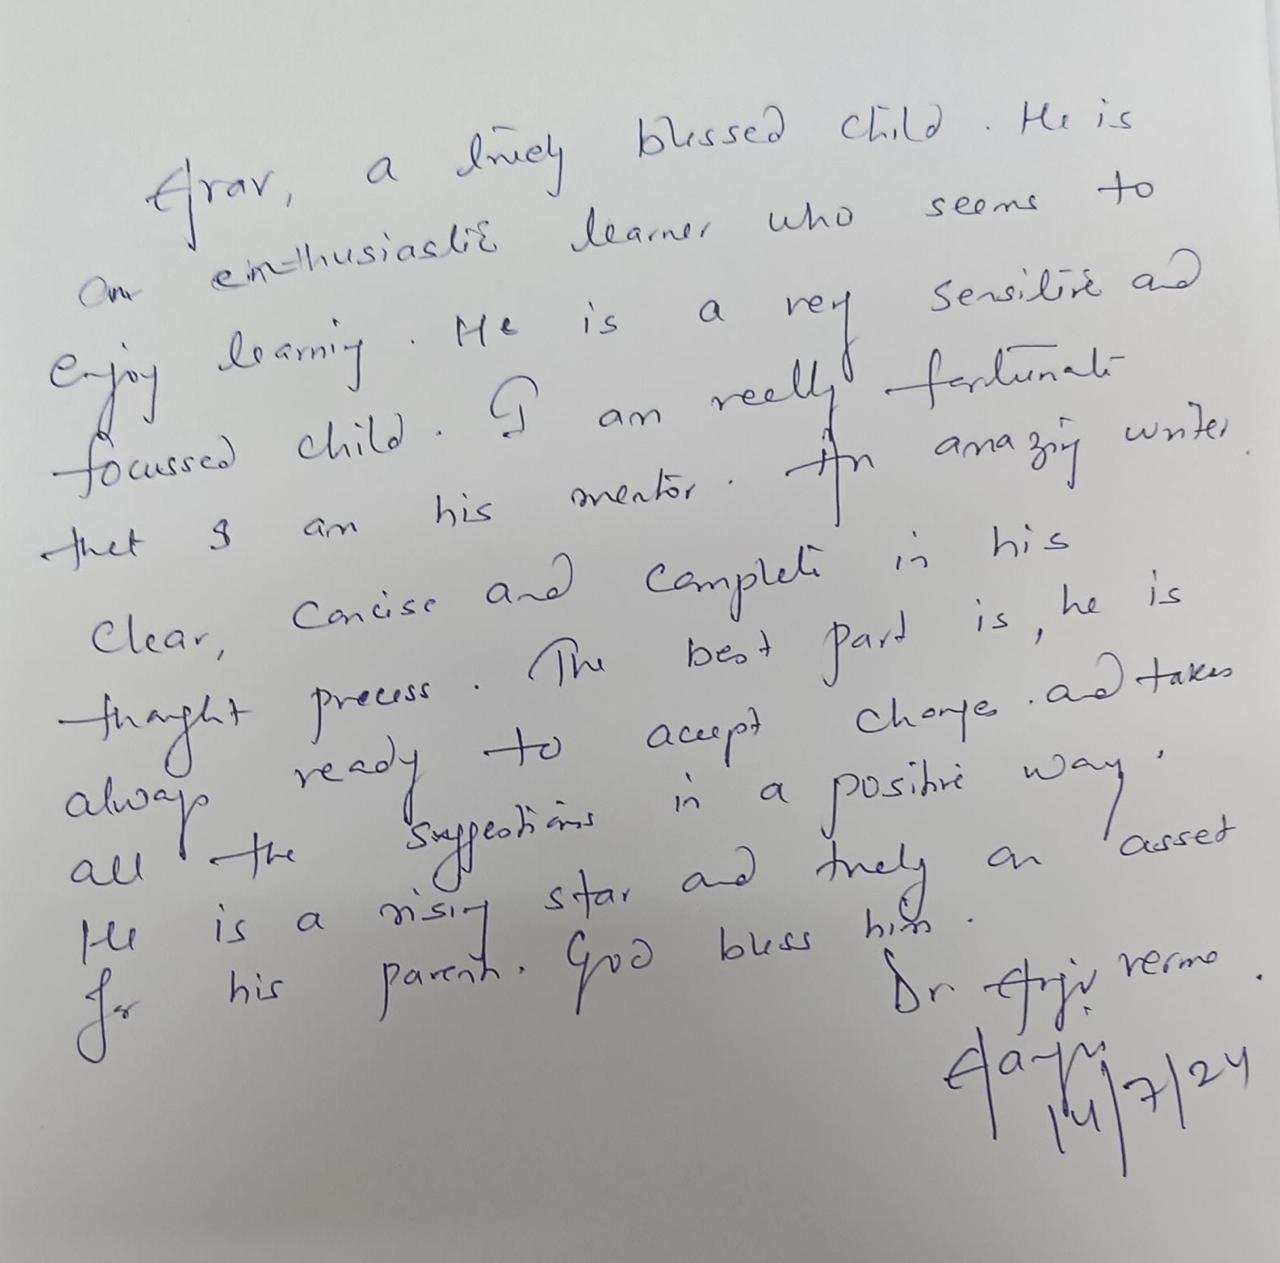 Arav, a truely blessed child. He is
an enthusiastic learner who seems to
enjoy learning. He is a very sensitive and
focussed child. I am really fortunate
that I am his mentor. An amazing writer.
Clear, Concise and complete in his
thought process. The best part is, he is
always ready to accept changes and takes
all the suggestions in a positive way.
He is a rising star and truely an asset
for his parents. God bless him.
Dr verma
14/7/24